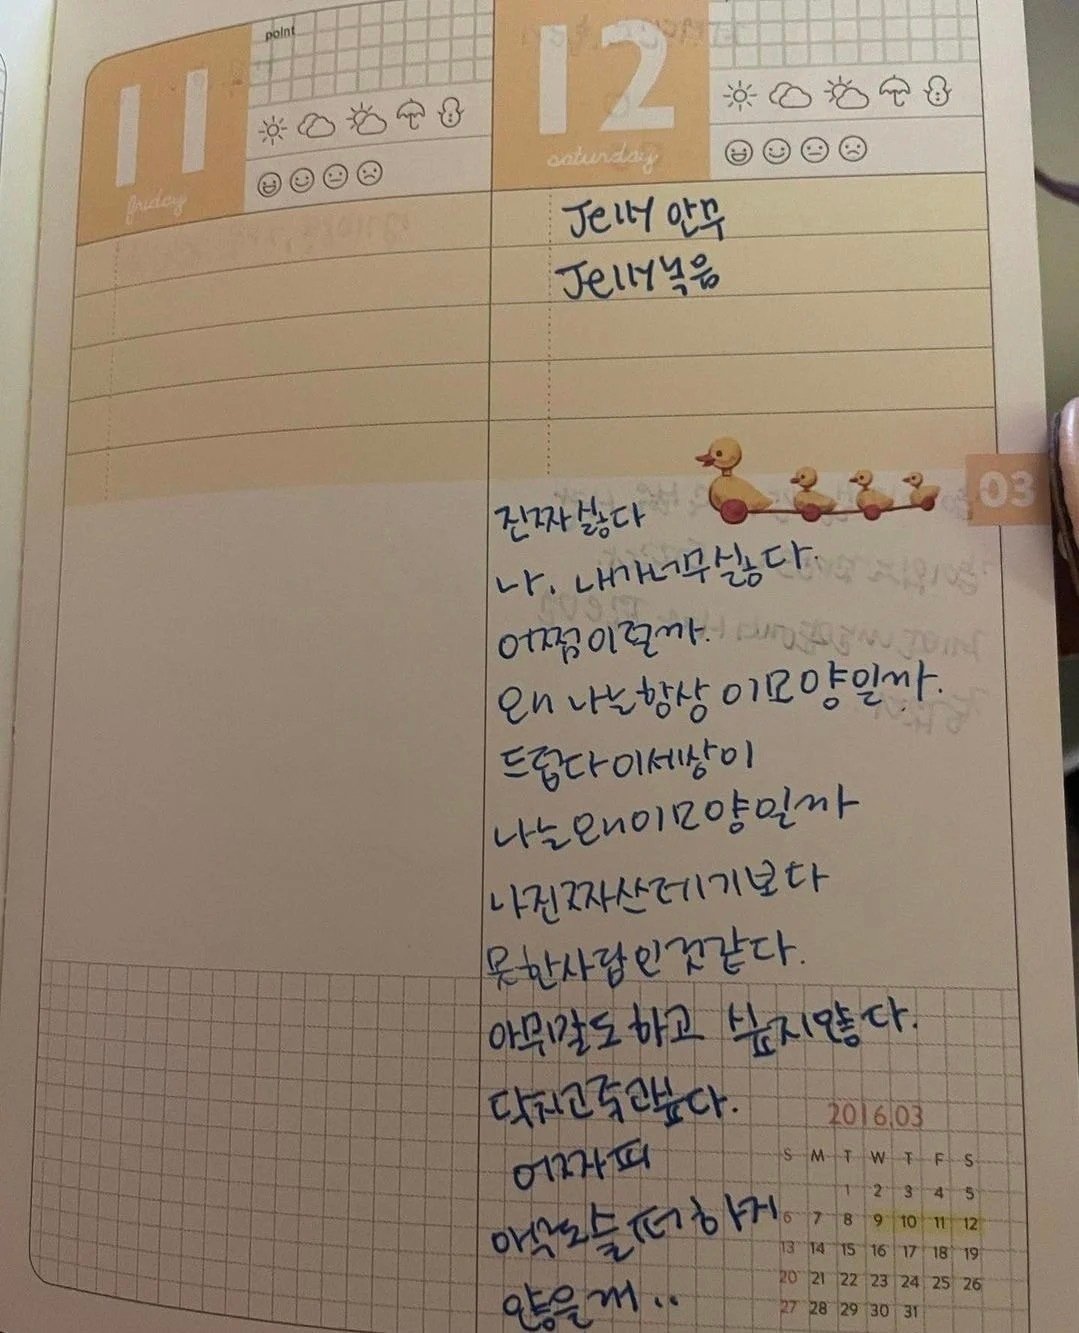 11
friday
point
12
saturday
Jelly 안무
Jelly 녹음
03
진짜 싫다
나. 내가 너무 싫다.
어쩜 이럴까.
왜 나는 항상 이 모양일까.
드럽다 이 세상이
나는 왜 이 모양일까
나 진짜 쓰레기보다
못한 사람인 것 같다.
아무 말도 하고 싶지 않다.
닥치고 죽고싶다.
어차피
아무도 슬퍼하지
않을 걸..
2016.03
S M T W T F S
1 2 3 4 5
6 7 8 9 10 11 12
13 14 15 16 17 18 19
20 21 22 23 24 25 26
27 28 29 30 31